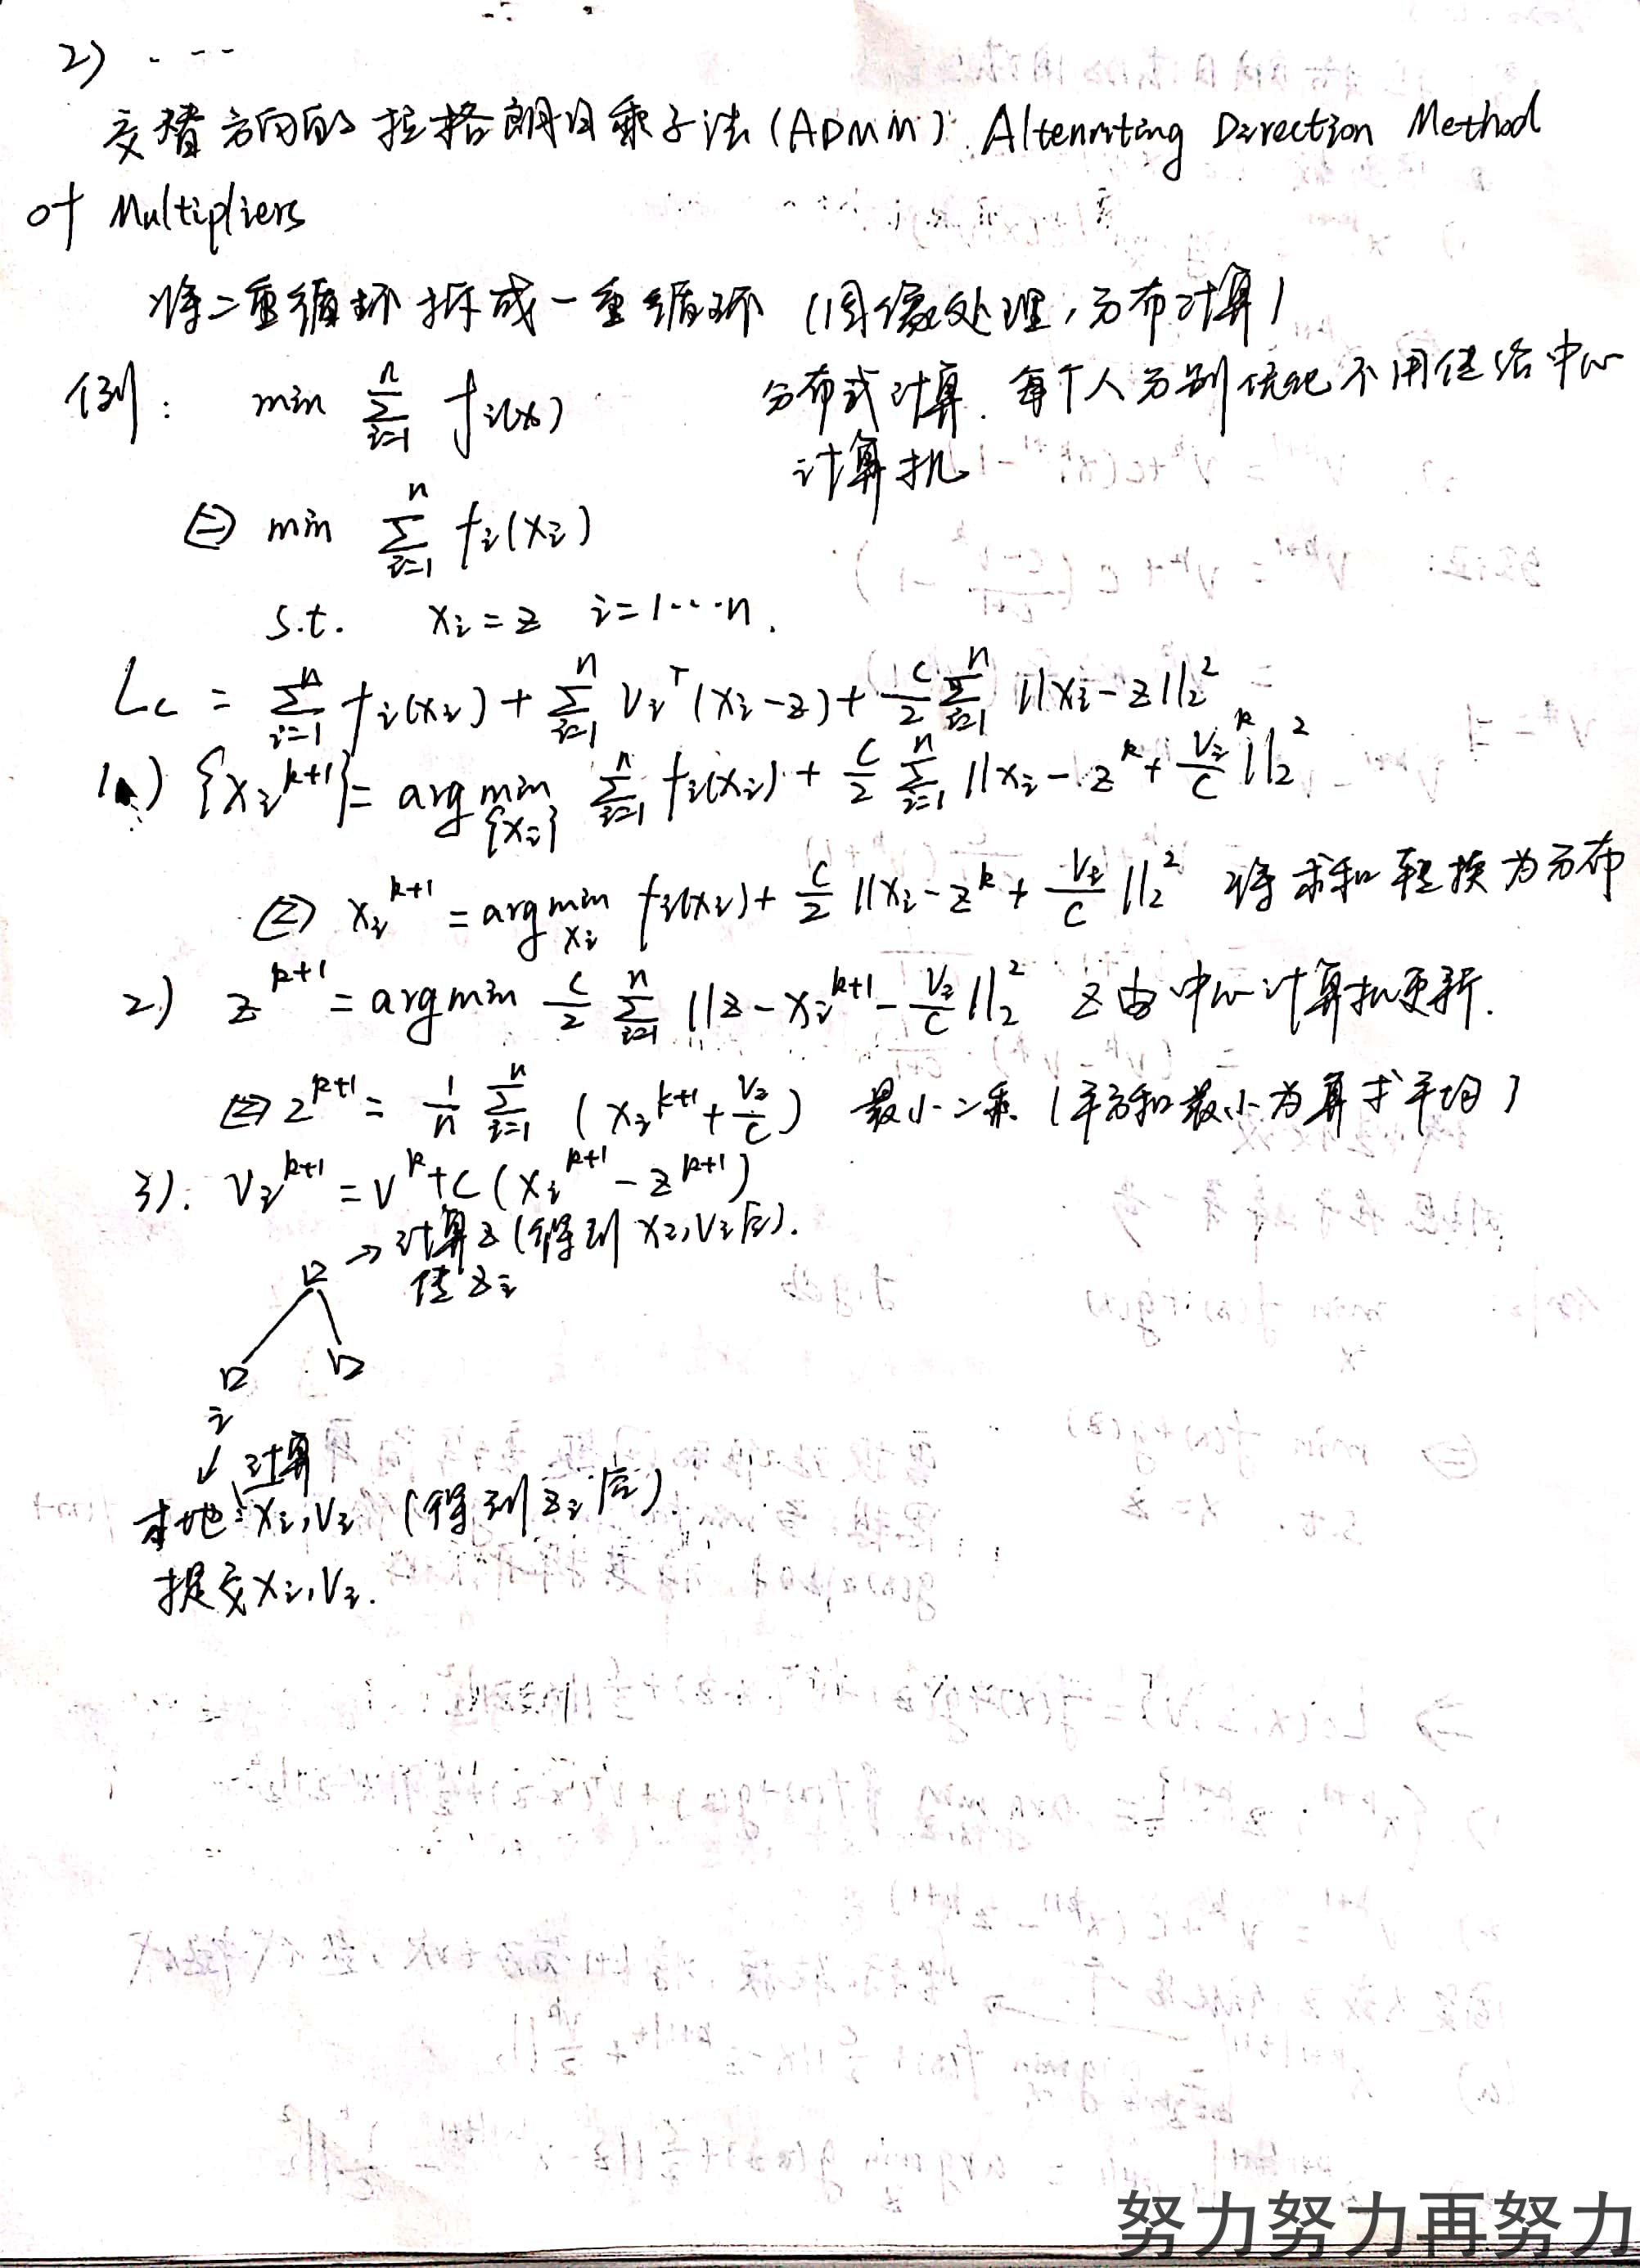 2) . - - -
交替方向的拉格朗日乘子法(ADMM): Altenrting Direction Method
of Multipliers
将二重循环拆成一重循环 (图像处理,分布计算)
例: min \sum_{i=1}^{n} f_i(x)
分布式计算. 每个人分别优化不用传给中心
计算机
⇔ min \sum_{i=1}^{n} f_i(x_i)
s.t. x_i = z i=1···n.
L_c = \sum_{i=1}^{n} f_i(x_i) + \sum_{i=1}^{n} v_i^T (x_i - z) + \frac{c}{2} \sum_{i=1}^{n} ||x_i - z||_2^2
1) {x_i^{k+1}} = arg min_{{x_i}} \sum_{i=1}^{n} f_i(x_i) + \frac{c}{2} \sum_{i=1}^{n} ||x_i - z^k + \frac{v_i^k}{c}||_2^2
⇔ x_i^{k+1} = arg min_{x_i} f_i(x_i) + \frac{c}{2} ||x_i - z^k + \frac{v_i}{c}||_2^2 将求和转换为分布
2) z^{k+1} = arg min \frac{c}{2} \sum_{i=1}^{n} ||z - x_i^{k+1} - \frac{v_i}{c}||_2^2 z由中心计算机更新.
⇔ z^{k+1} = \frac{1}{n} \sum_{i=1}^{n} (x_i^{k+1} + \frac{v_i}{c}) 最小二乘 (平方和最小为算术平均)
3). v_i^{k+1} = v^k + c (x_i^{k+1} - z^{k+1})
→ 计算z (得到 x_i, v_i后).
传 z_i
i
↓ 计算
本地: x_i, v_i (得到 z_i 后)
提交 x_i, v_i.
努力努力再努力